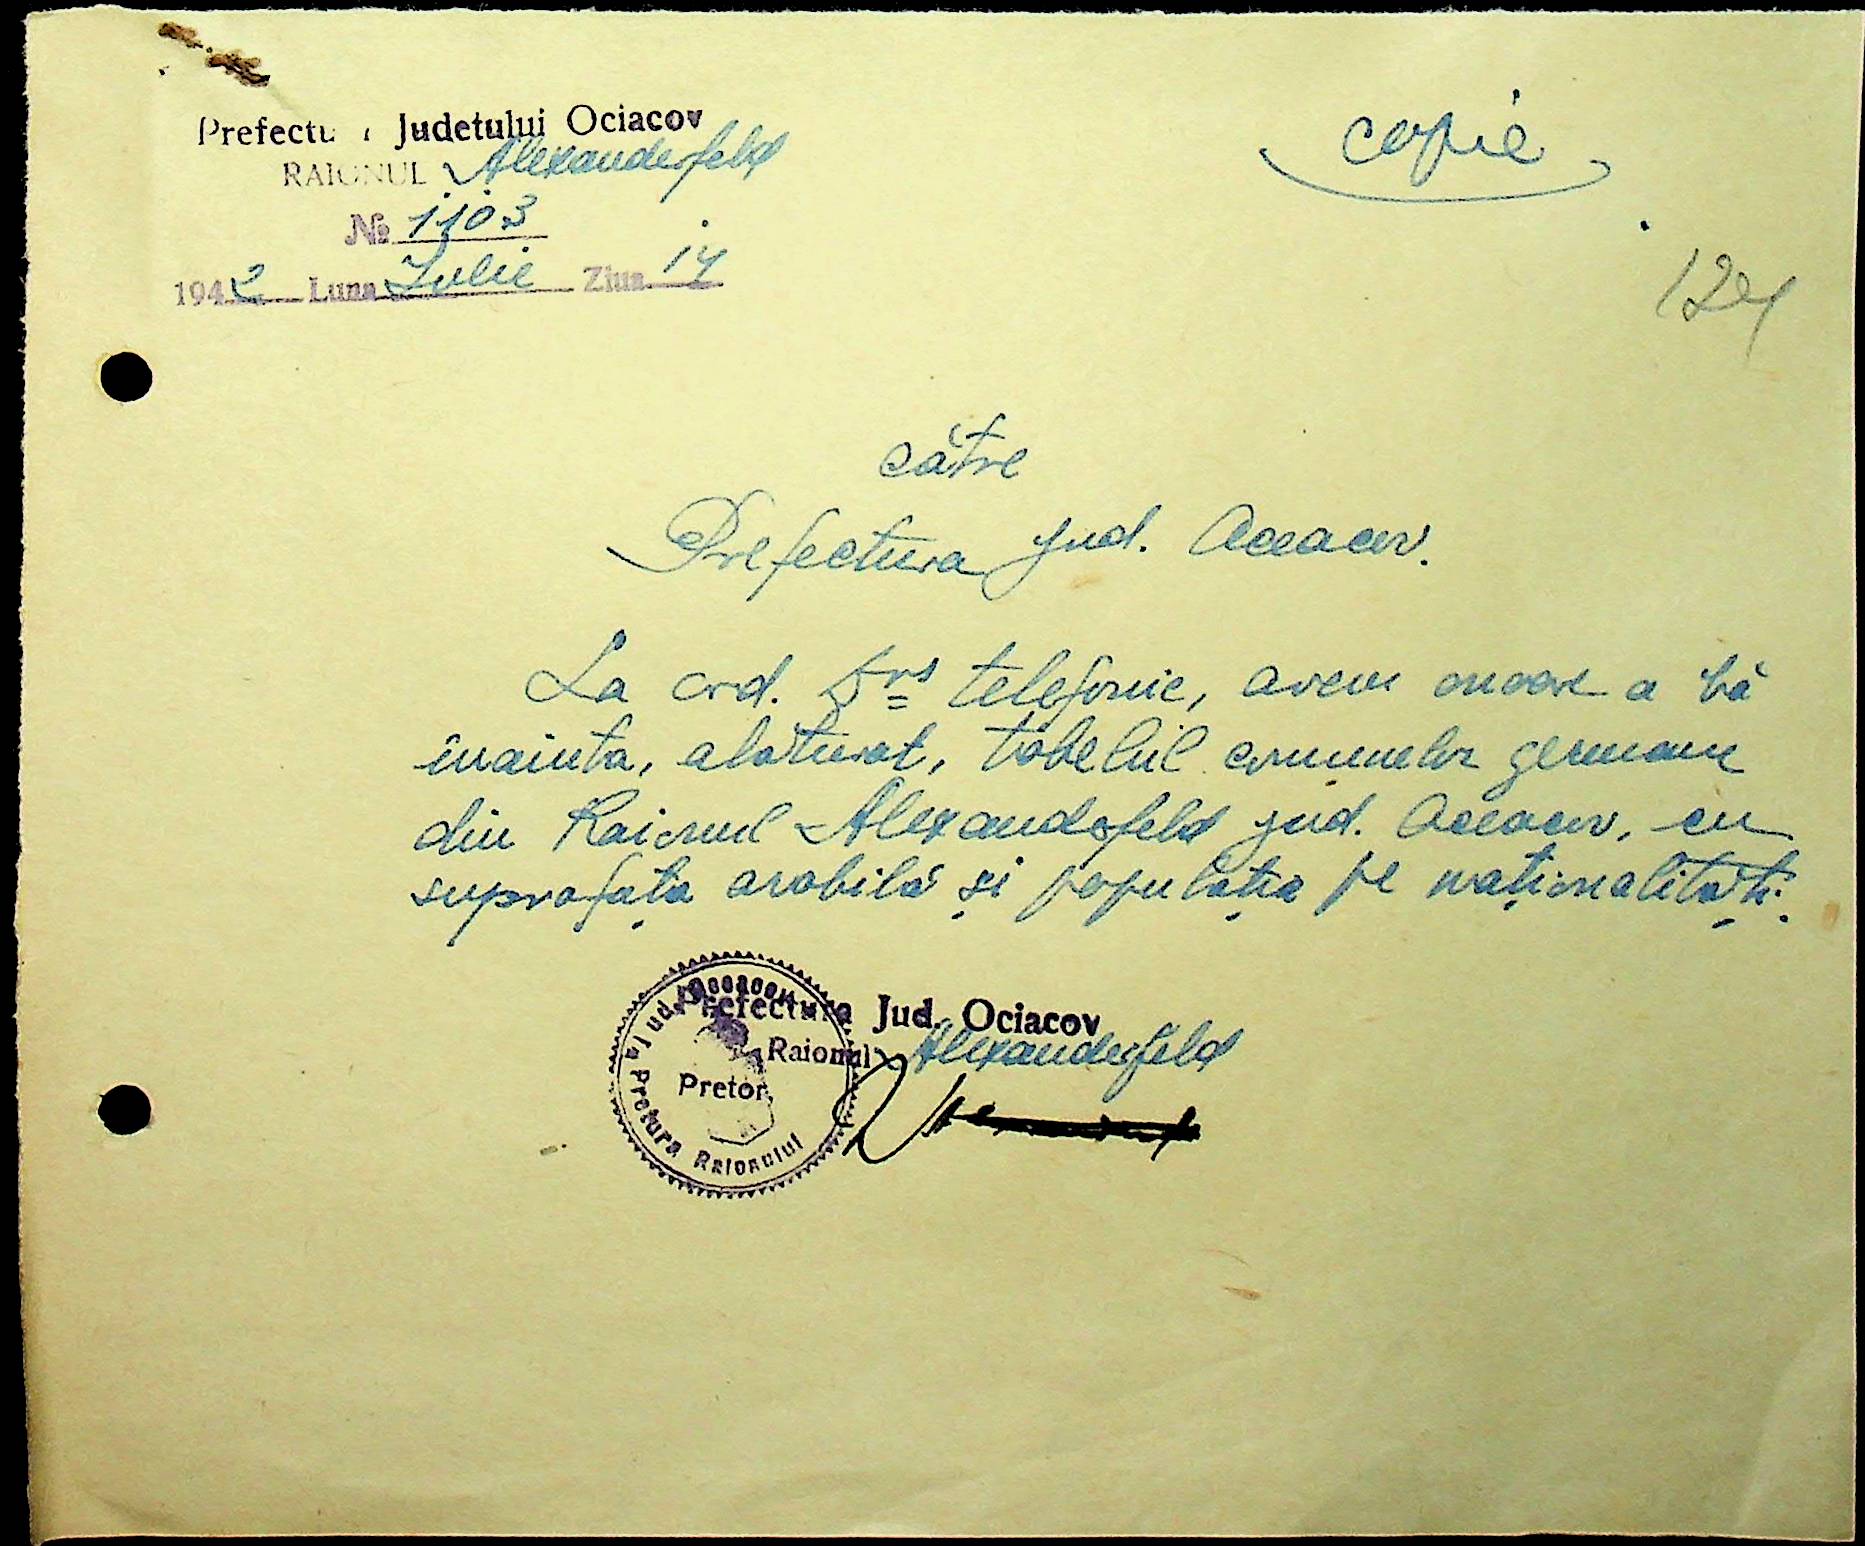 Prefectu Judetului Ociacov
copie
RAIONUL Alexanderfeld
№ 1103
1942 Luna Iulie Ziua 14
124
către
Prefectura jud. Oceacov.
La ord. Dvs telefonic, avem onoare a vă
înainta, alăturat, tabelul comunelor germane
din Raionul Alexanderfeld jud. Oceacov, cu
suprafața arabilă și populația pe naționalități.
Prefectura Jud. Ociacov
Raionul Alexanderfeld
Pretor,
Pretura Raionului